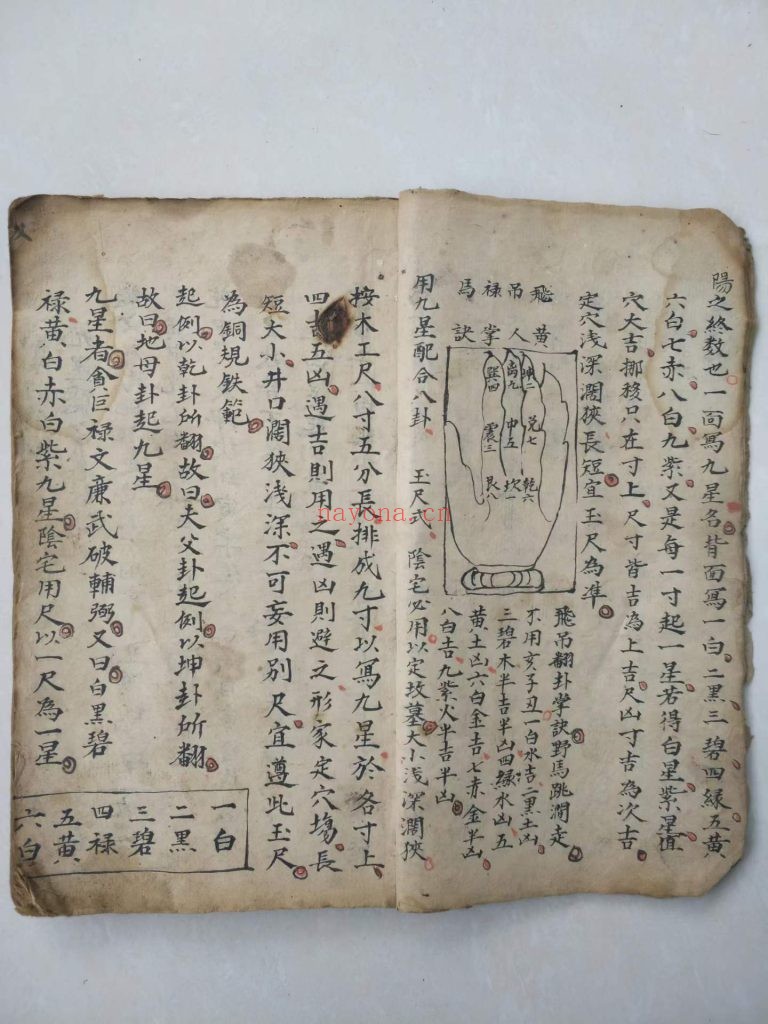 陽之終数也一面寫九星各背面寫一白二黒三碧四緑五黄
六白七赤八白九紫又是每一寸起一星若得白星紫星值
穴大吉挪移只在寸上尺寸皆吉為上吉尺凶寸吉為次吉
定穴浅深濶狹長短宜玉尺為準
飛吊禄馬
黄人掌訣
坤二
兑七
乾六
离九
中五
坎一
巽四
震三
艮八
飛吊翻卦掌訣野馬跳澗走
不用亥子丑一白水吉二黒土凶
三碧木半吉半凶四緑水凶五
黄土凶六白金吉七赤金半凶
八白吉九紫火半吉半凶
用九星配合八卦 玉尺式 陰宅必用以定坟墓大小浅深濶狹
按木工尺八寸五分長排成九寸以寫九星於各寸上
四吉五凶遇吉則用之遇凶則避之形家定穴塲長
短大小井口濶狹浅深不可妄用別尺宜遵此玉尺
為銅規鉄範
起例以乾卦所翻故曰天父卦起例以坤卦所翻
故曰地母卦起九星
九星者貪巨禄文廉武破輔弼又曰白黒碧
禄黄白赤白紫九星陰宅用尺以一尺為一星
一白
二黒
三碧
四禄
五黄
六白
nayona.cn